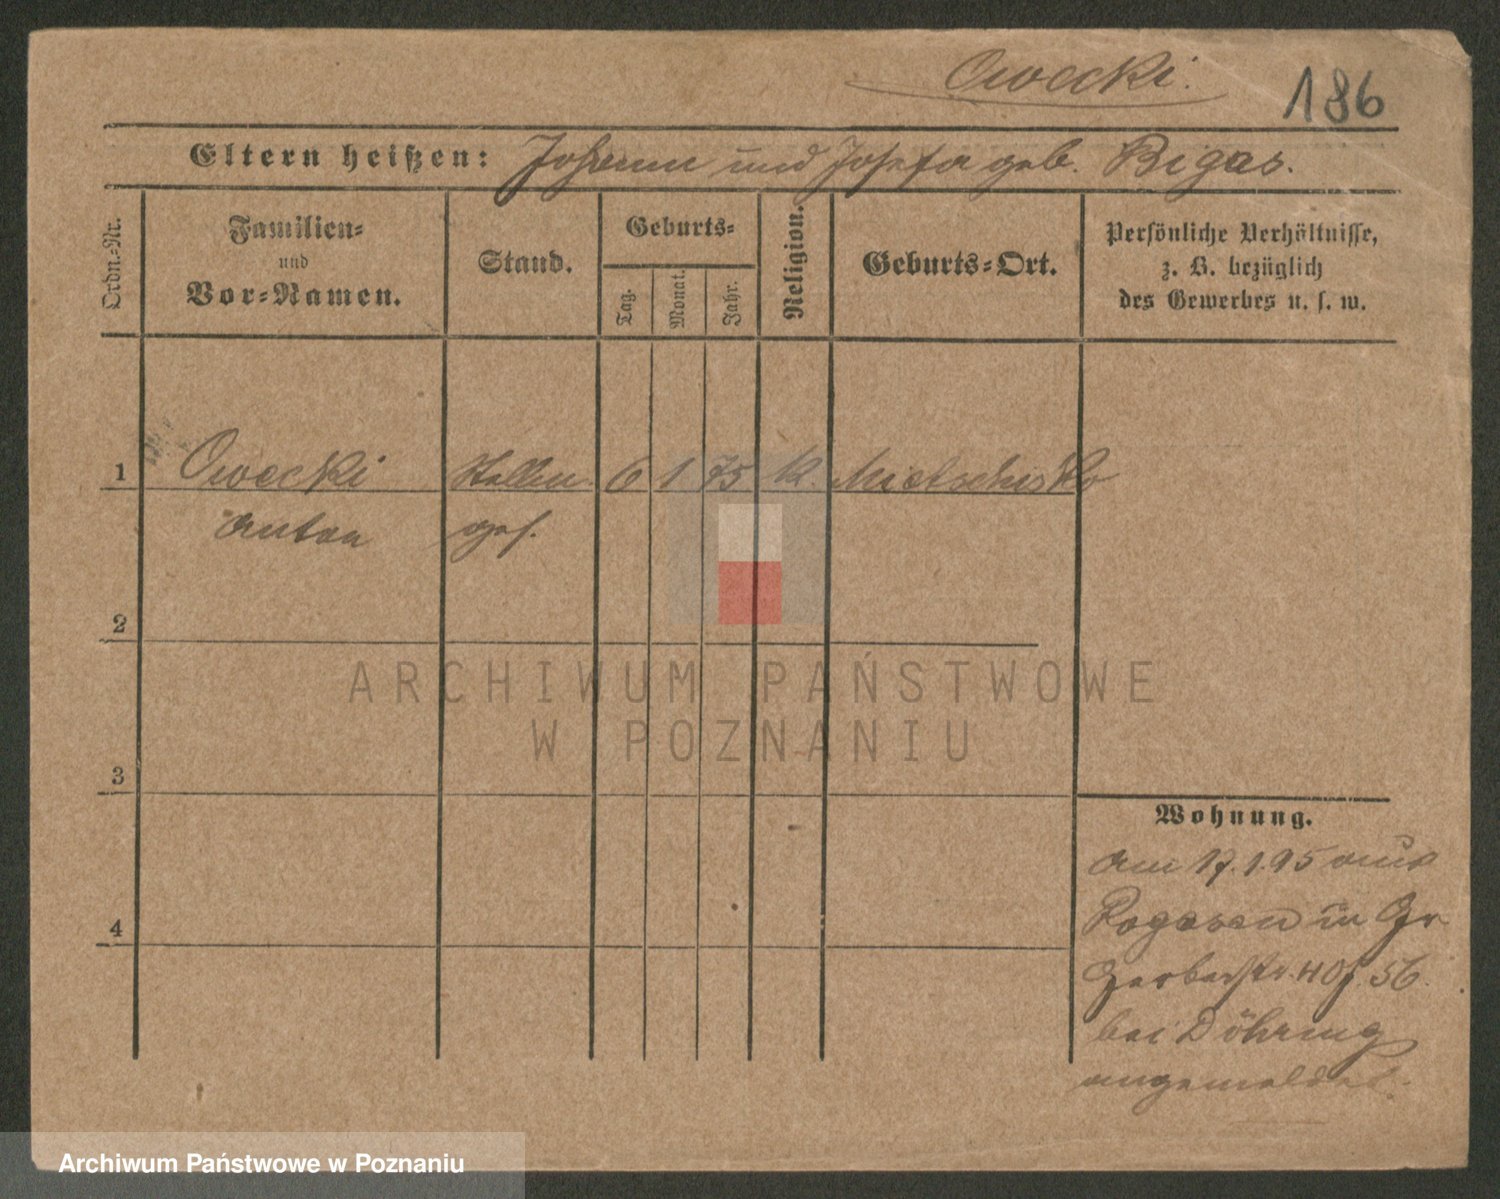 Owecki.
186
Eltern heißen: Johann und Josefa geb. Bigas.
Ordn.-Nr.
Familien-
und
Vor-Namen.
Stand.
Geburts-
Tag.
Monat.
Jahr.
Religion.
Geburts-Ort.
Persönliche Verhältnisse,
z. B. bezüglich
des Gewerbes u. s. w.
1 Owecki 6 1 75 k. Mietschisko
Anton ges.
2
3
4
Wohnung.
Am 17.1.95 aus
Rogasen in Gr
Gerberstr. 56.
bei Döhring
angemeldet.
ARCHIWUM PAŃSTWOWE
W POZNANIU
Archiwum Państwowe w Poznaniu